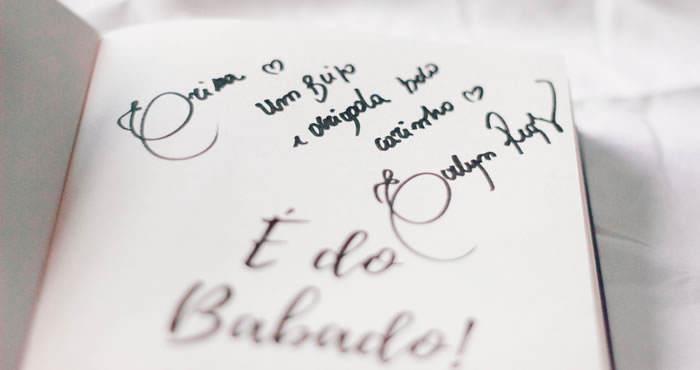 um Beijo
e obrigada pelo
carinho ♡
Evelyn
É do
Babado!